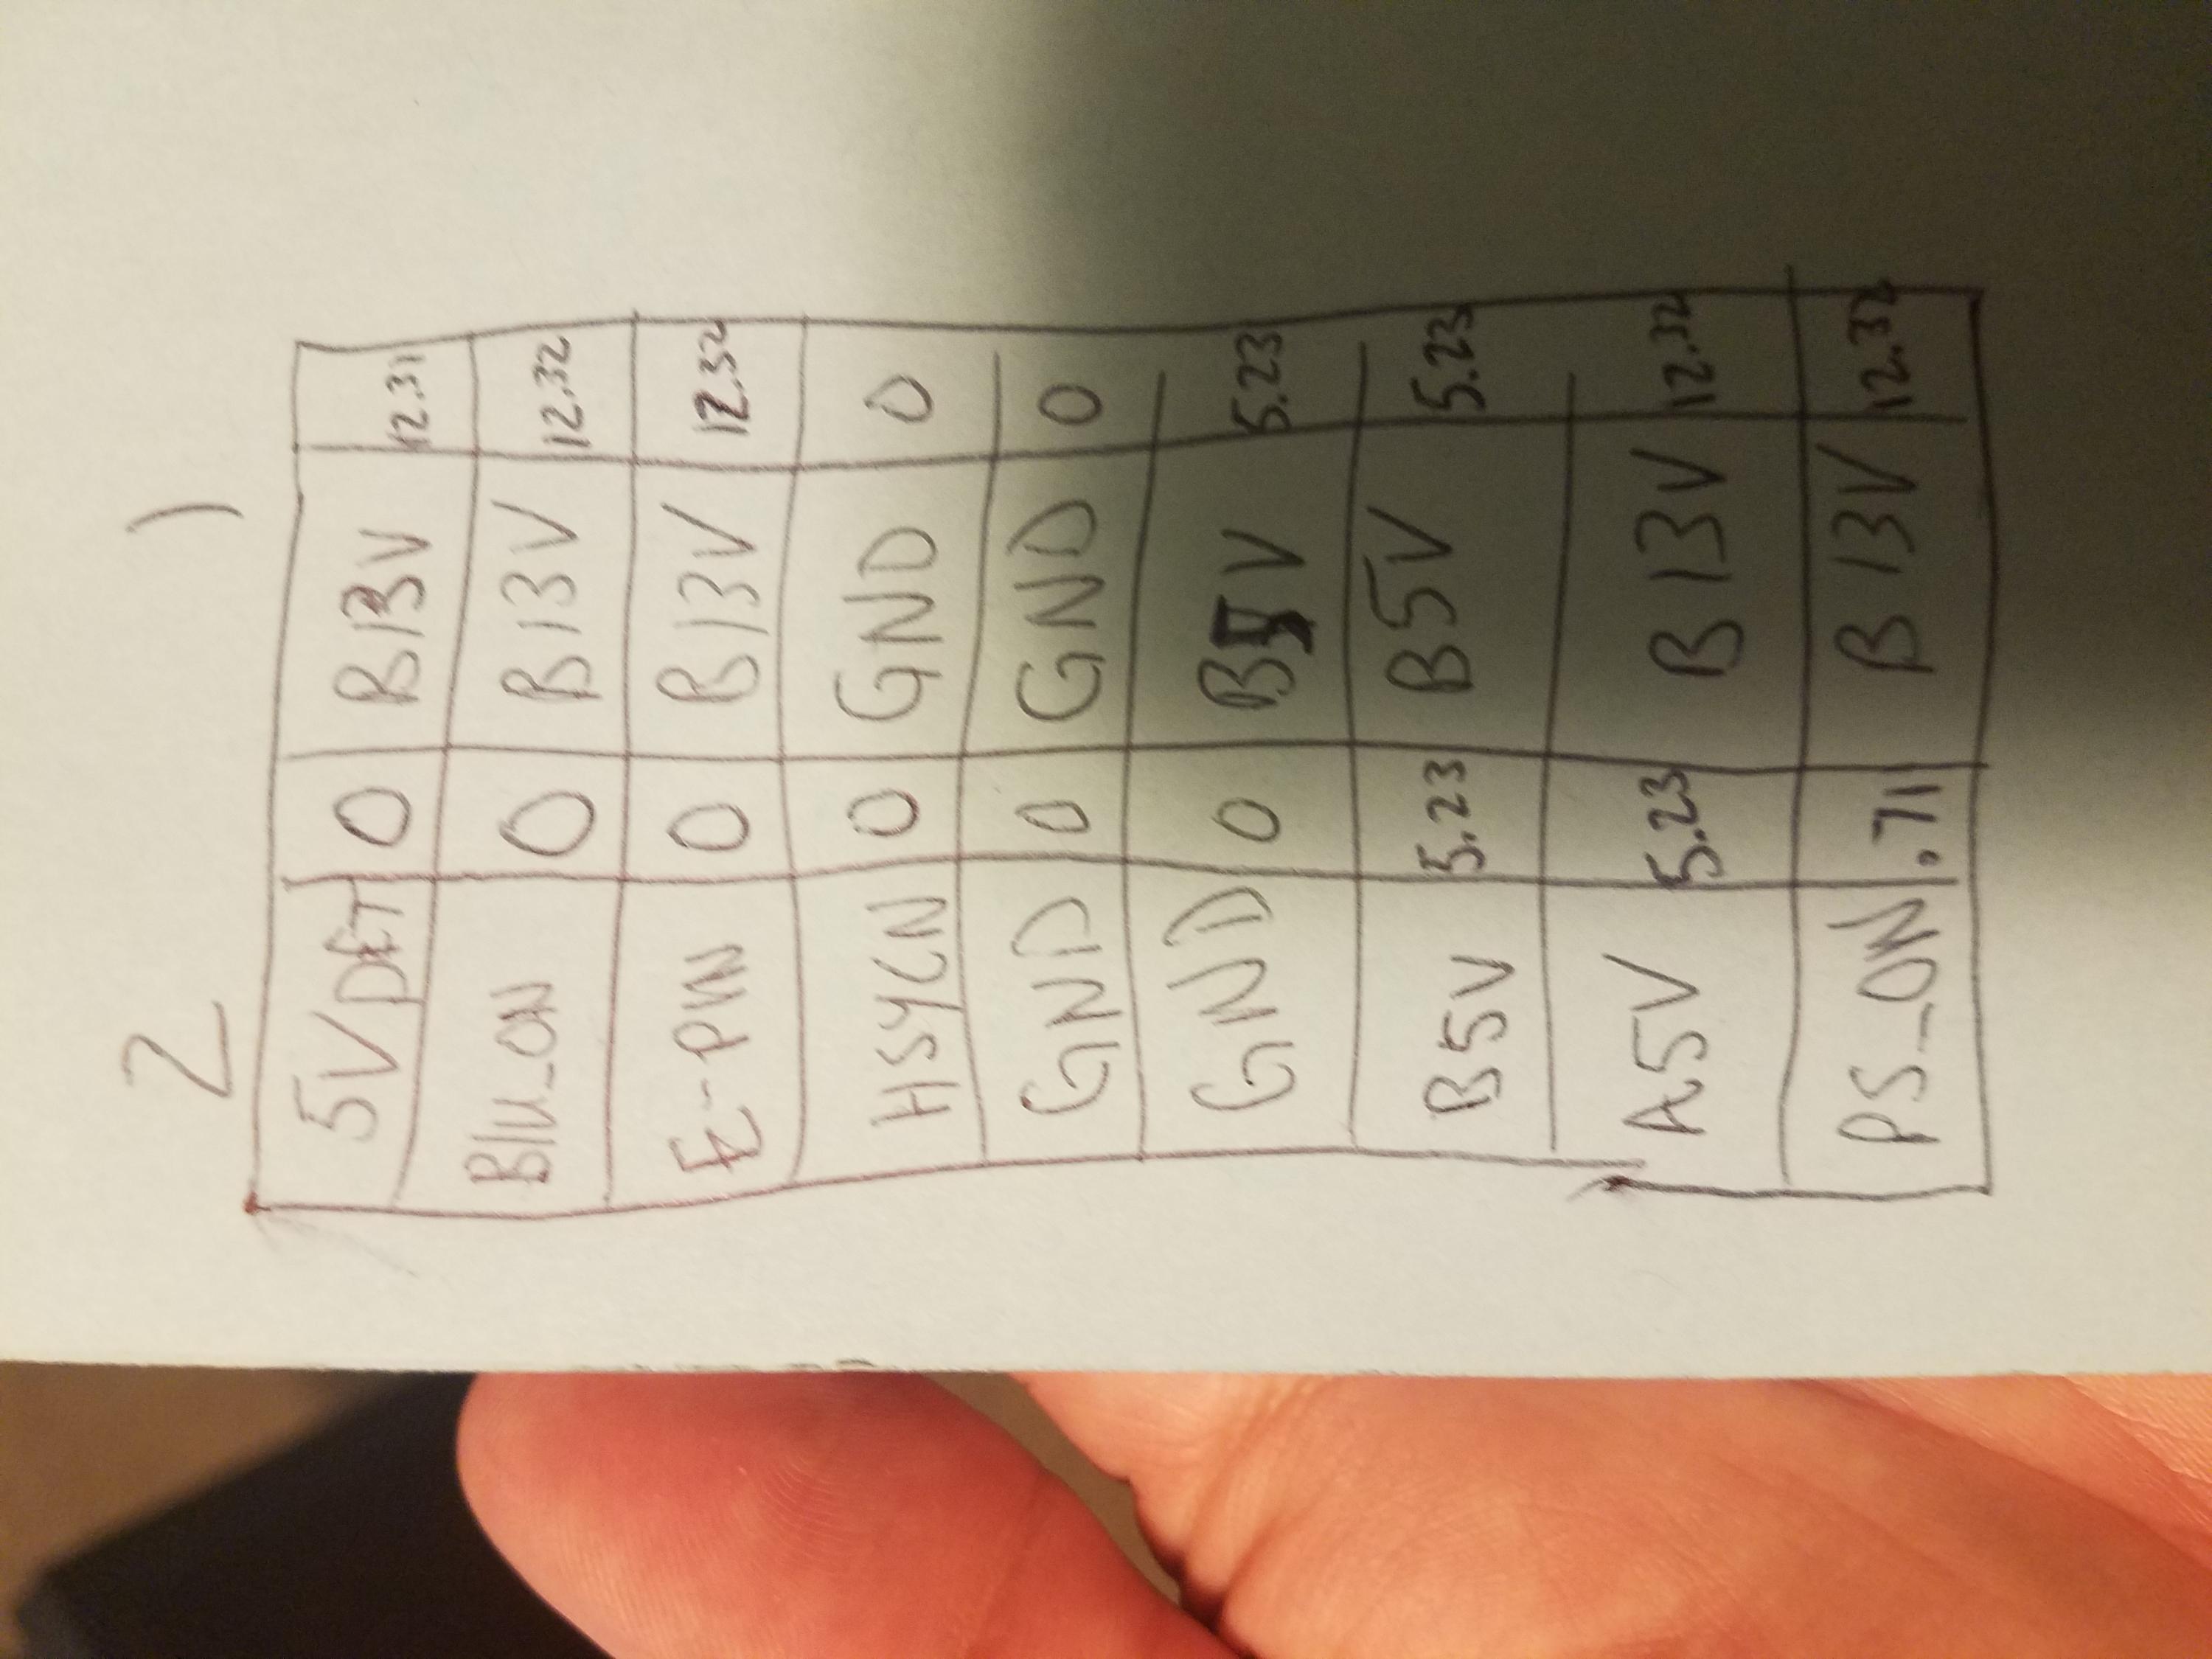 2 1
5V DET 0 B13V 12.31
Blu_ON 0 B13V 12.32
0 B13V 12.32
HSYCN 0 GND 0
GND 0 GND 0
GND 0 B5V 5.23
B5V 5.23 B5V 5.23
A5V 5.23 B13V 12.32
PS_ON .71 B13V 12.32